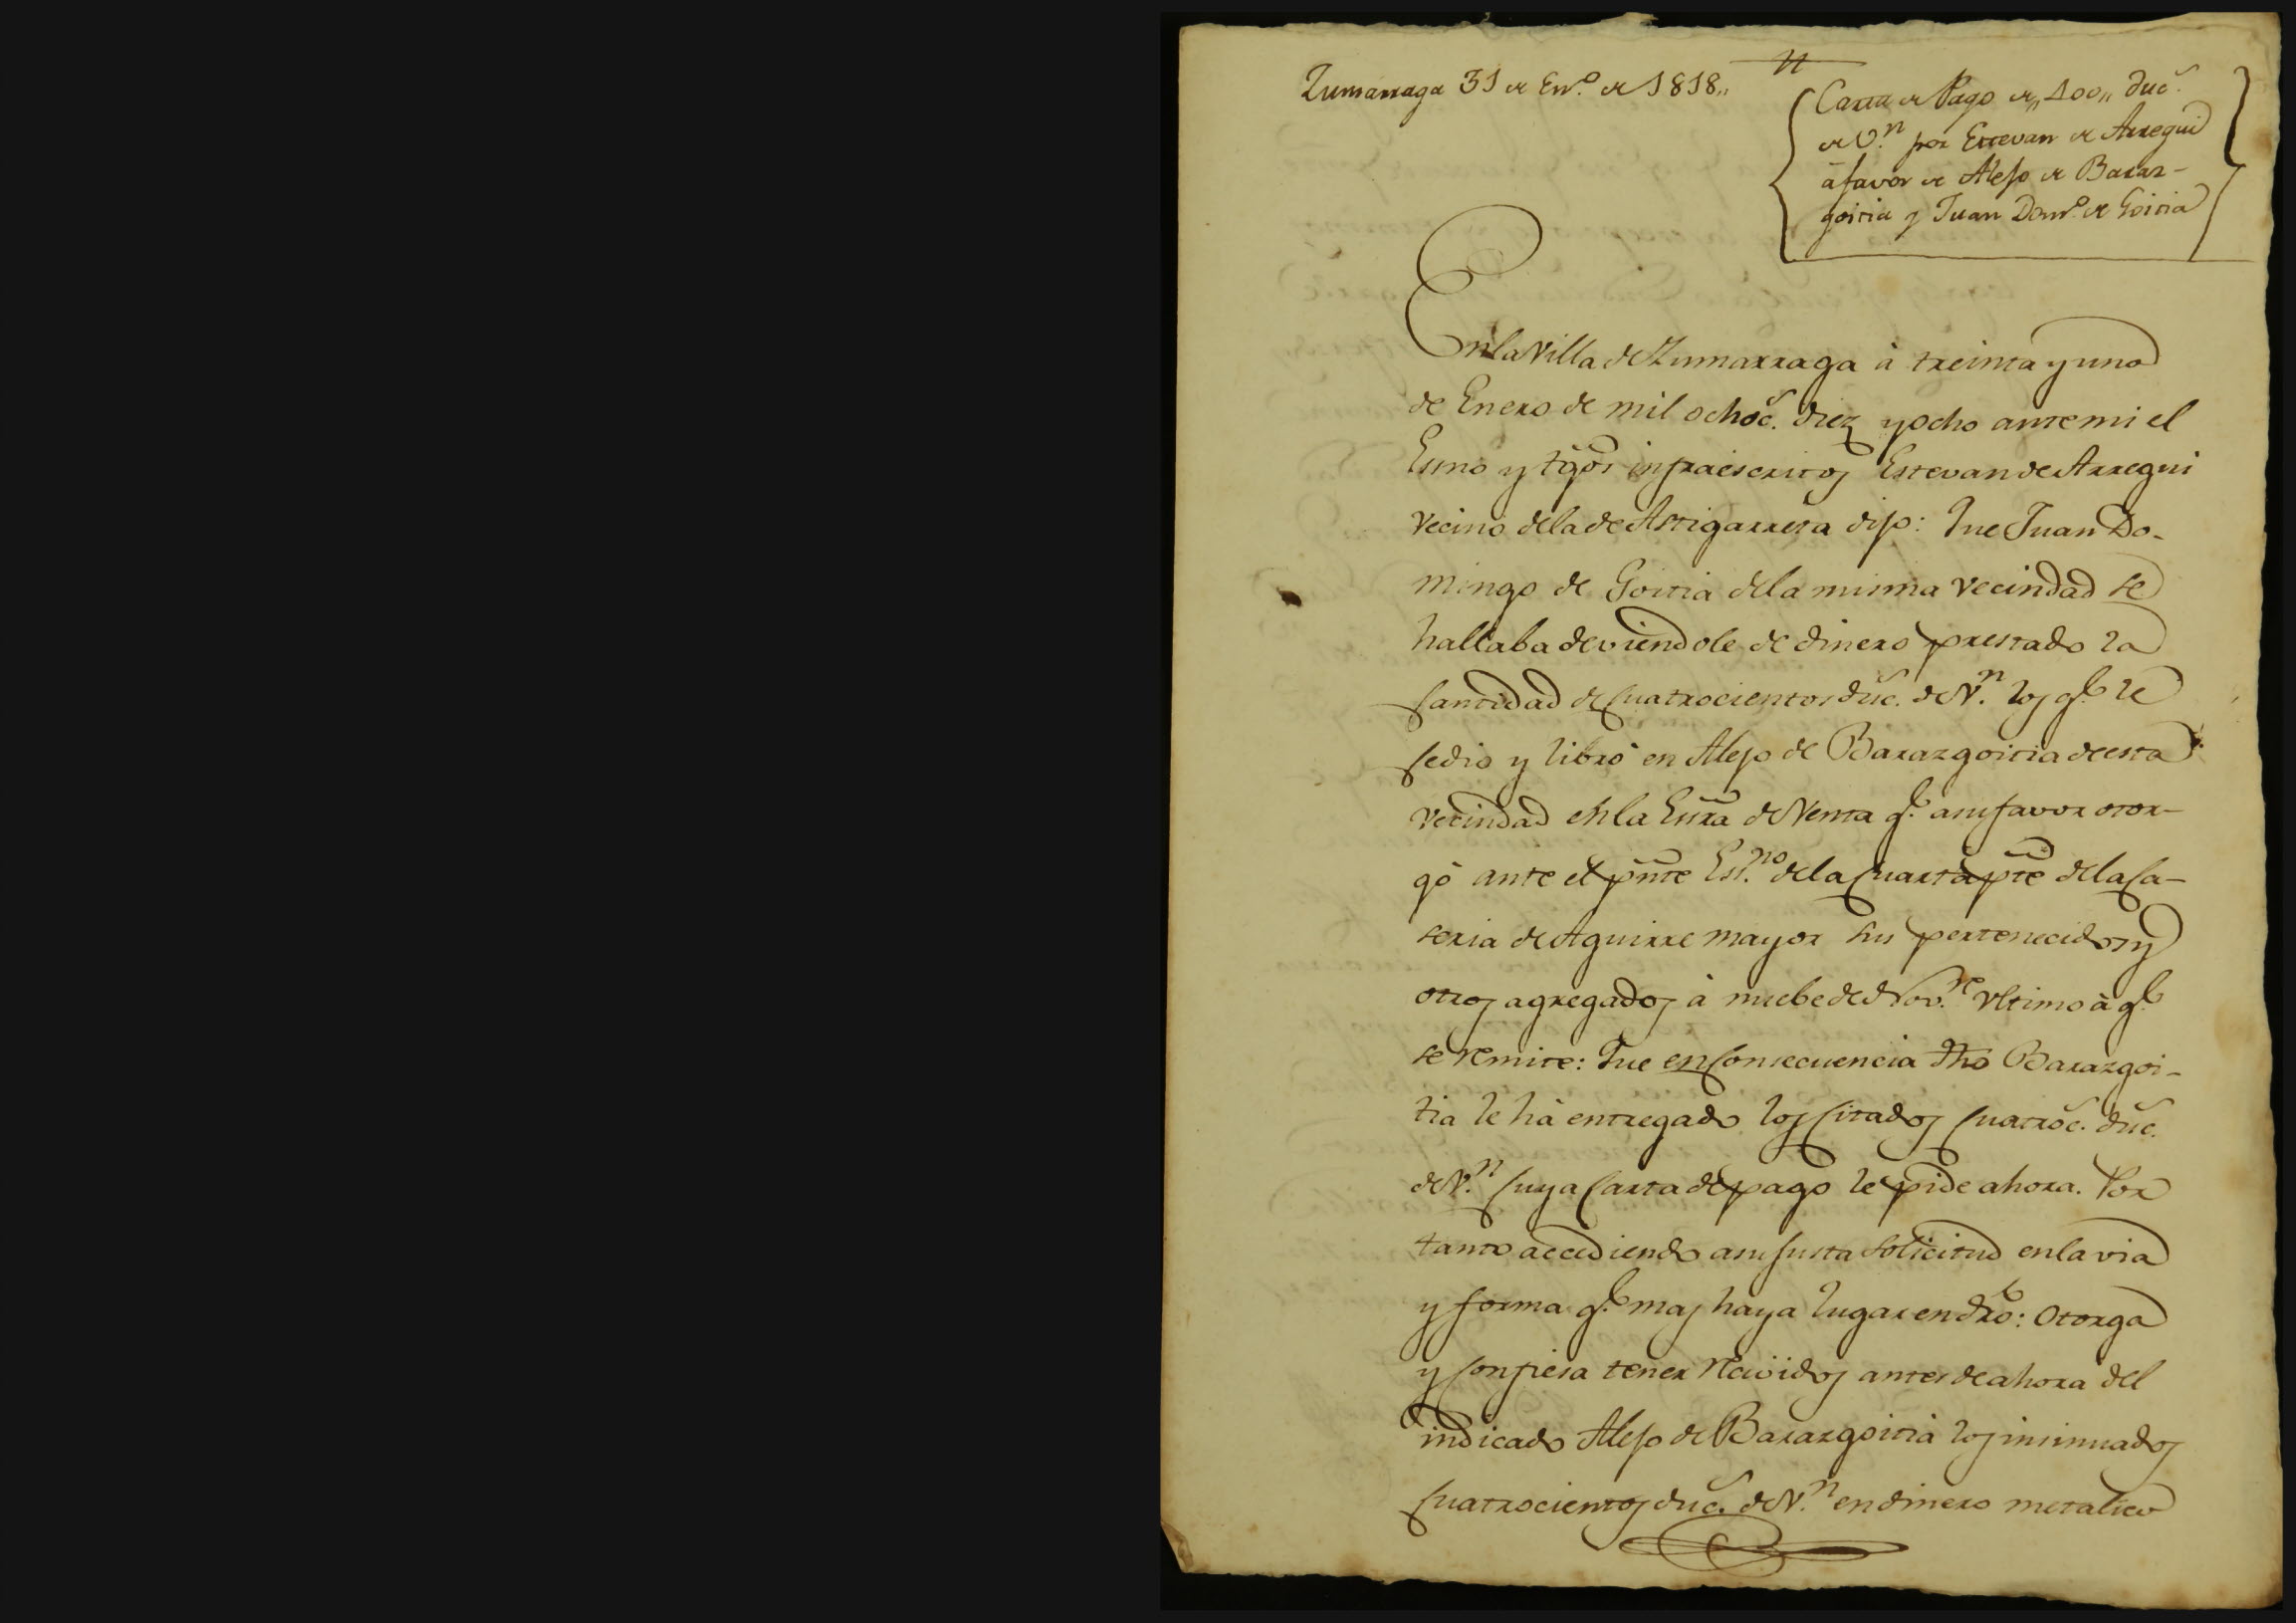 Zumarraga 31 de En.º de 1818,,
Carta de Pago de ,,400,, duc.ˢ
de V.ⁿ por Estevan de Arregui
á favor de Alejo de Baraz-
goitia y Juan Dom.º de Goitia
En la Villa de Zumarraga à treinta y uno
de Enero de mil ochoc.ˢ diez y ocho ante mi el
Esno y tgos infraescritos Estevan de Arregui
vecino de la de Astigarreta dijo: Que Juan Do-
mingo de Goitia de la misma vecindad se
hallaba deviendole de dinero prestado la
cantidad de cuatrocientos duc.ˢ de V.ⁿ los q.ᵉ le
cedio y libró en Alejo de Barazgoitia de esta
vecindad en la Essra de Venta q.ᵉ a su favor otor-
gó ante el pnte Es.ⁿᵒ de la cuarta pte de la Ca-
seria de Aguirre mayor sus pertenecidos y
otros agregados à nuebe de Nov.ʳᵉ ultimo à q.ᵉ
se remite: Que en consecuencia dho Barazgoi-
tia le hà entregado los citados cuatroc.ˢ duc.ˢ
de V.ⁿ cuya carta de pago le pide ahora. Por
tanto accediendo a su justa solicitud en la via
y forma q.ᵉ mas haya lugar en dro: Otorga
y confiesa tener reciuidos antes de ahora del
indicado Alejo de Barazgoitia los insinuados
cuatrocientos duc.ˢ de V.ⁿ en dinero metalico